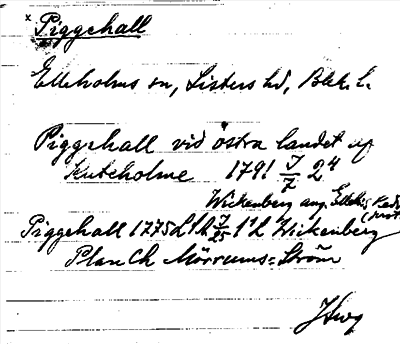 x Piggehall
Elleholms sn, Listers hd, Blek. l.
Piggehall vid östra landet af
Kuteholme 1791 J/7 24
Wickenberg ang. Elleh.
Piggehall 1775 J/25 Wickenberg
Plan Ch Mörrums=Ström